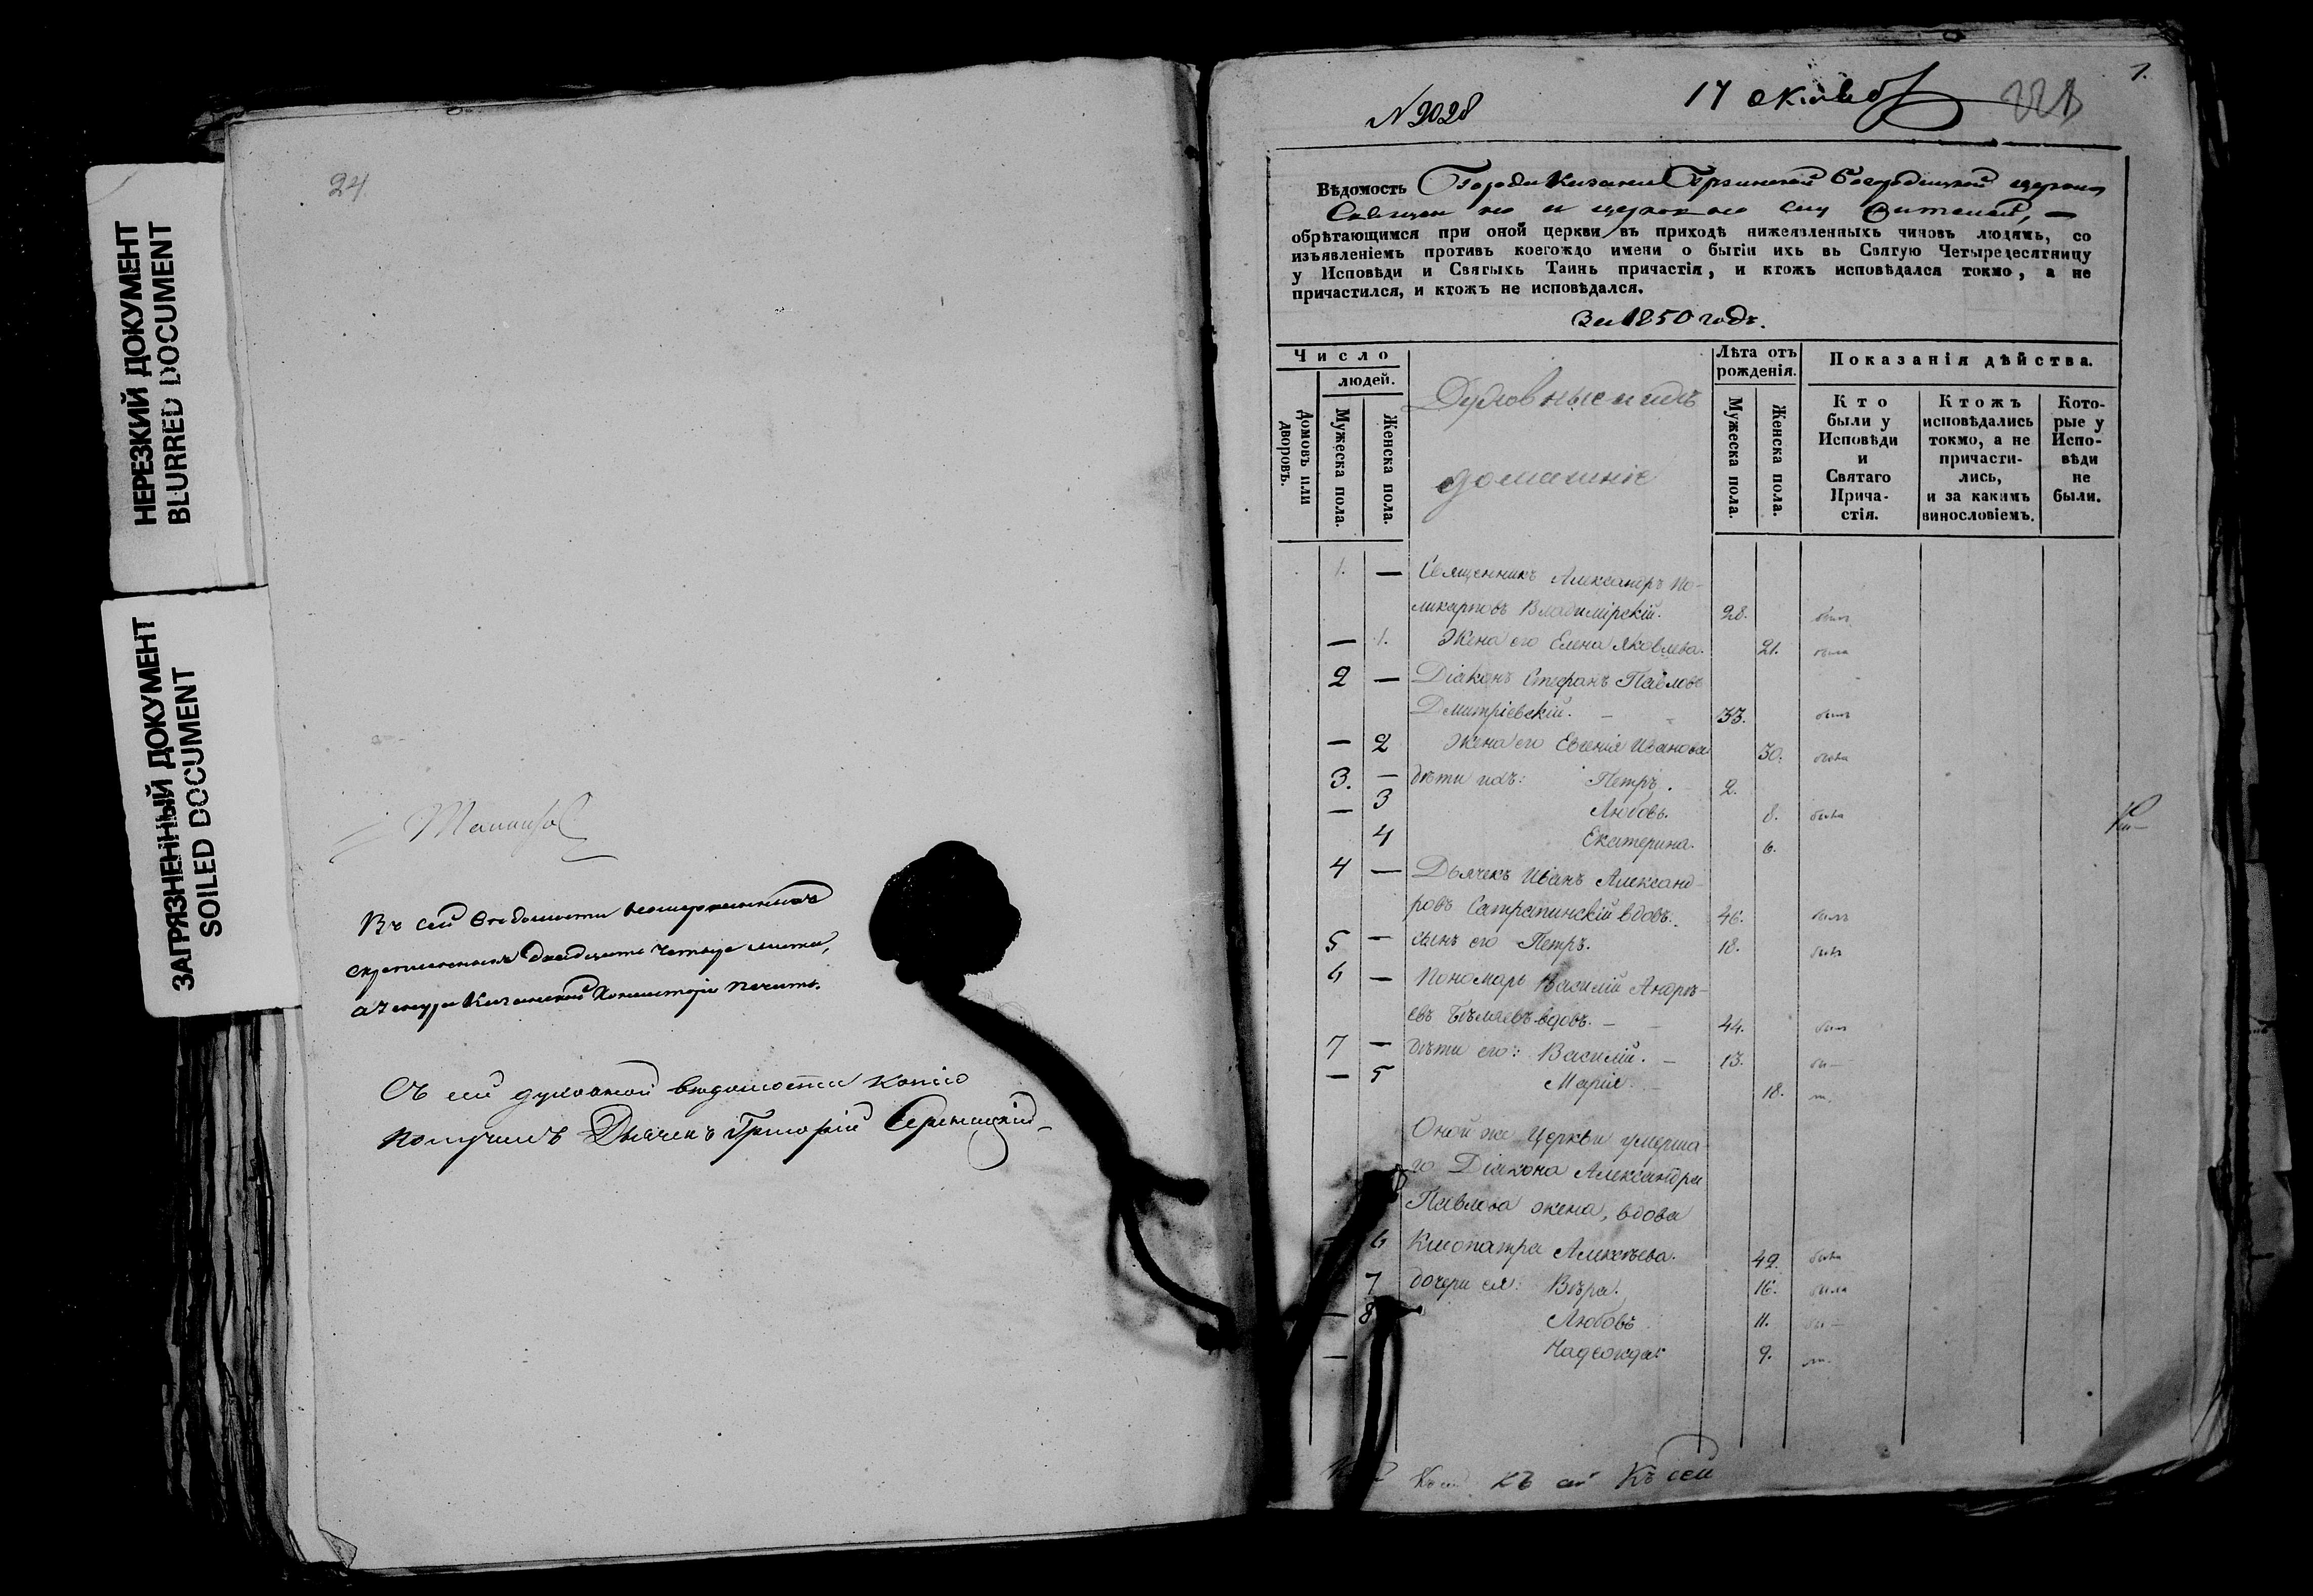 НЕРЕЗКИЙ ДОКУМЕНТ
BLURRED DOCUMENT
ЗАГРЯЗНЕННЫЙ ДОКУМЕНТ
SOILED DOCUMENT
24
Въ сей ведомости
скрепленныхъ двадцать четыре листа,
Казанской Консисторіи печать.
Съ сей духовной вѣдомости копію
получилъ Дьячекъ Григорій
1.
№ 2028
17 октяб
228
Вѣдомость Города Казани Грузинской Богородицкой церкви
Священно и церковно служителей, —
обрѣтающимся при оной церкви въ приходѣ нижеявленныхъ чиновъ людямъ, со
изъявленіемъ противъ коегождо имени о бытіи ихъ въ Святую Четыредесятницу
у Исповѣди и Святыхъ Таинъ причастія, и ктожъ исповѣдался токмо, а не
причастился, и ктожъ не исповѣдался.
За 1850 годъ.
Число
людей.
Домовъ или дворовъ.
Мужеска пола.
Женска пола.
Духовные и ихъ
домашніе
Лѣта отъ рожденія.
Мужеска пола.
Женска пола.
Показанія дѣйства.
Кто были у Исповѣди и Святаго Прича- стія.
Ктожъ исповѣдались токмо, а не причасти- лись, и за какимъ винословіемъ.
Кото- рые у Испо- вѣди не были.
1. — Священникъ Александръ По-
ликарповъ Владимірскій. 28. былъ
— 1. Жена его Елена Яковлева. 21. была
2 — Діаконъ Стефанъ Павловъ
Дмитріевскій. — 33. былъ
— 2 Жена его Евгенія Иванова 30. была
3. — дѣти ихъ: Петръ. 2.
— 3 Любовь. 8. была
4 Екатерина. 6.
4 — Дьячекъ Иванъ Александ-
ровъ Сатрапинскій вдовъ. 46. былъ
5 — сынъ его Петръ. 18. былъ
6 — Пономарь Василій Андрѣ-
евъ Бѣляевъ вдовъ. — 44. былъ
7 — дѣти его: Василій. — 13.
— 5 Марія. — 18.
Оной же Церкви умерша-
го Діакона Александра
Павлова жена, вдова
— 6 Клеопатра Алексѣева. 49. была
7 дочери ея: Вѣра. 16. была
— 8 Любовь 11.
— Надежда 9.
къ сей Къ сей